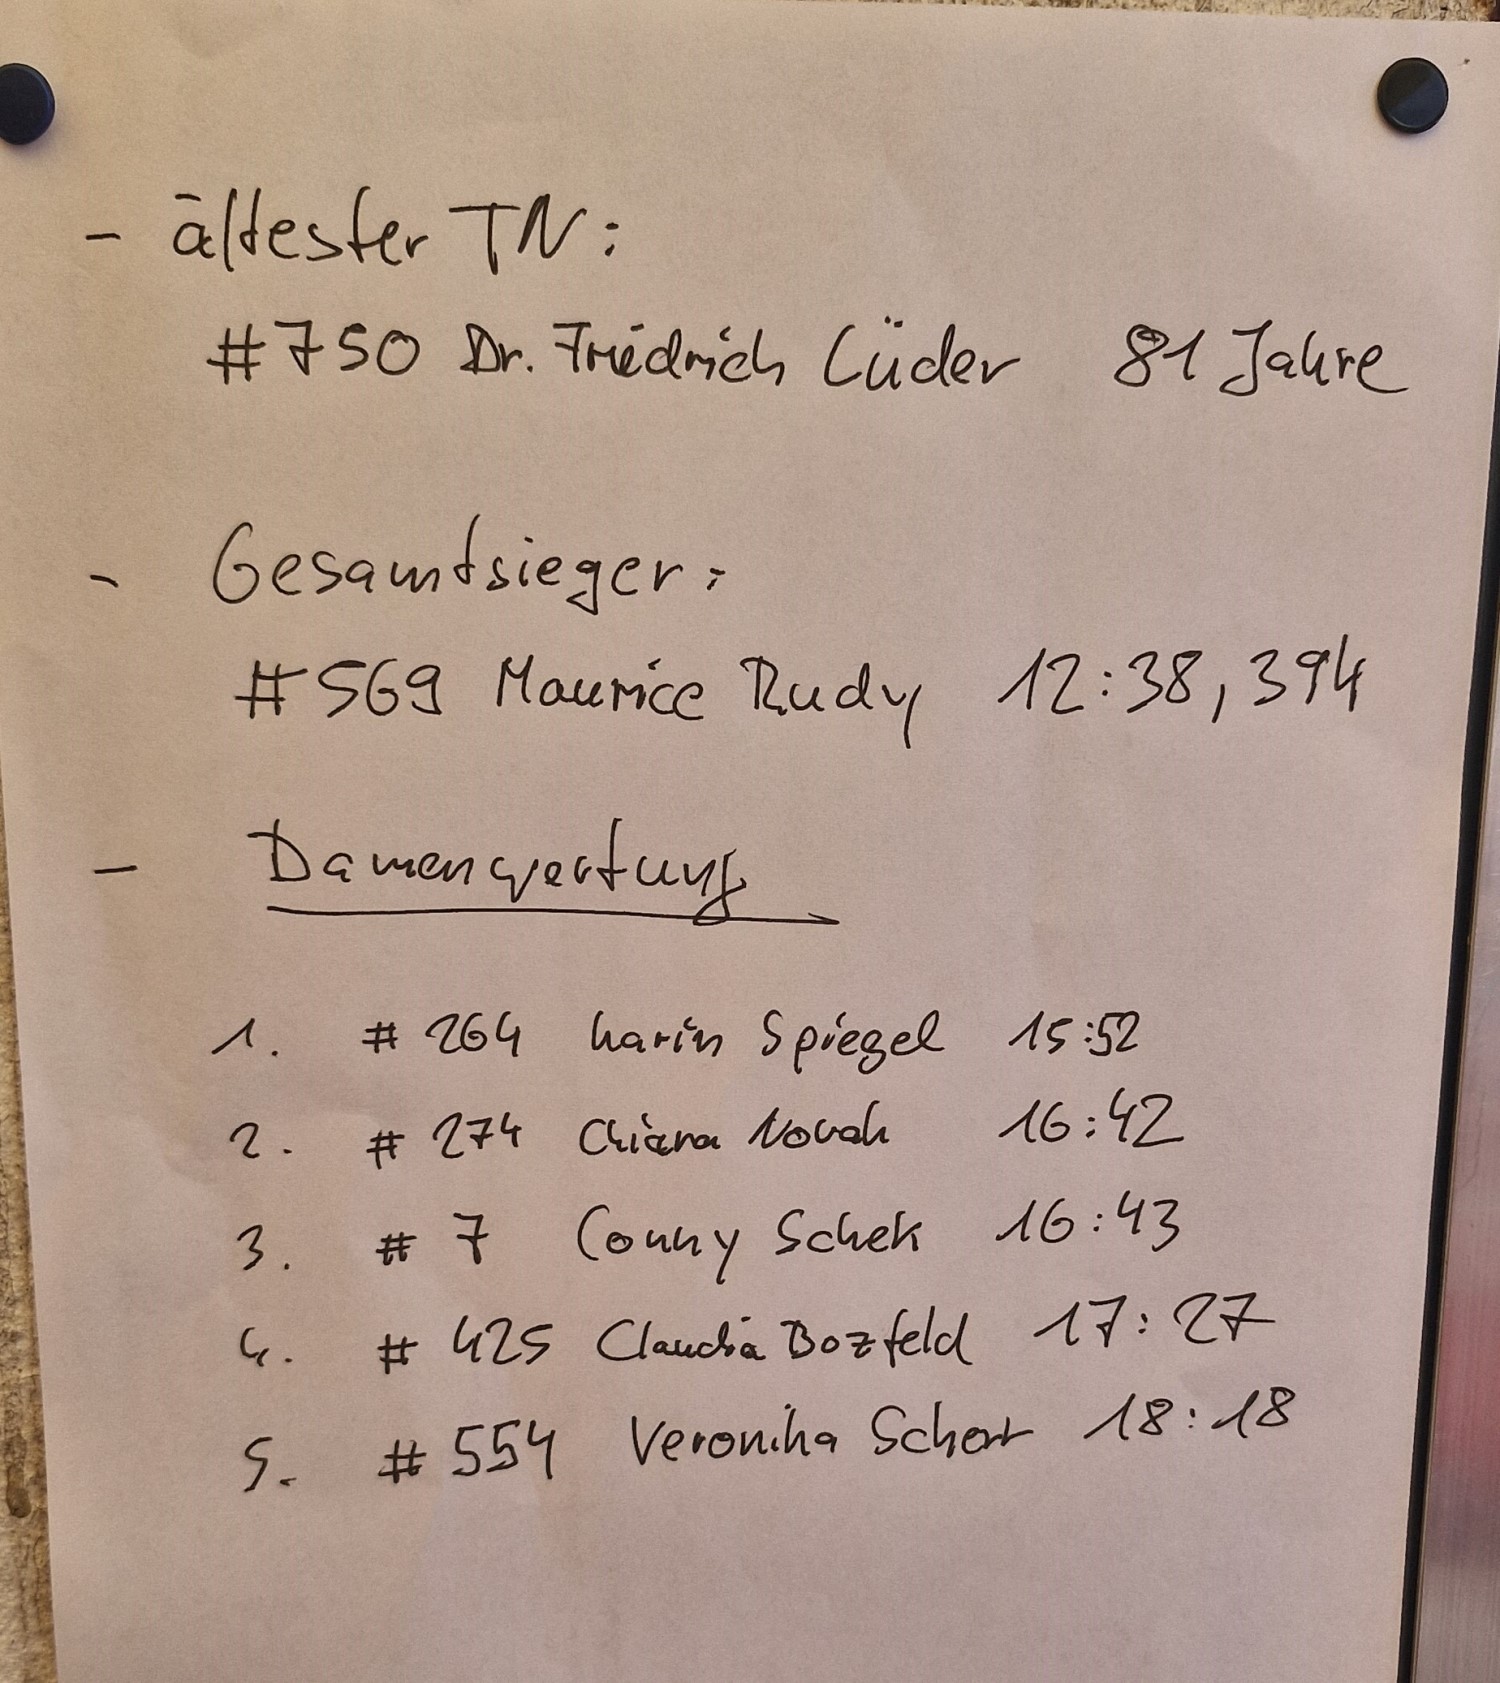 - ältester TN:
#750 Dr. Friedrich Lüder 81 Jahre
- Gesamtsieger:
#569 Maurice Rudy 12:38,394
- Damenwertung
1. # 264 Karin Spiegel 15:52
2. # 274 Chiara Novak 16:42
3. # 7 Conny Schek 16:43
4. # 425 Claudia Bozfeld 17:27
5. # 554 Veronika 18:18